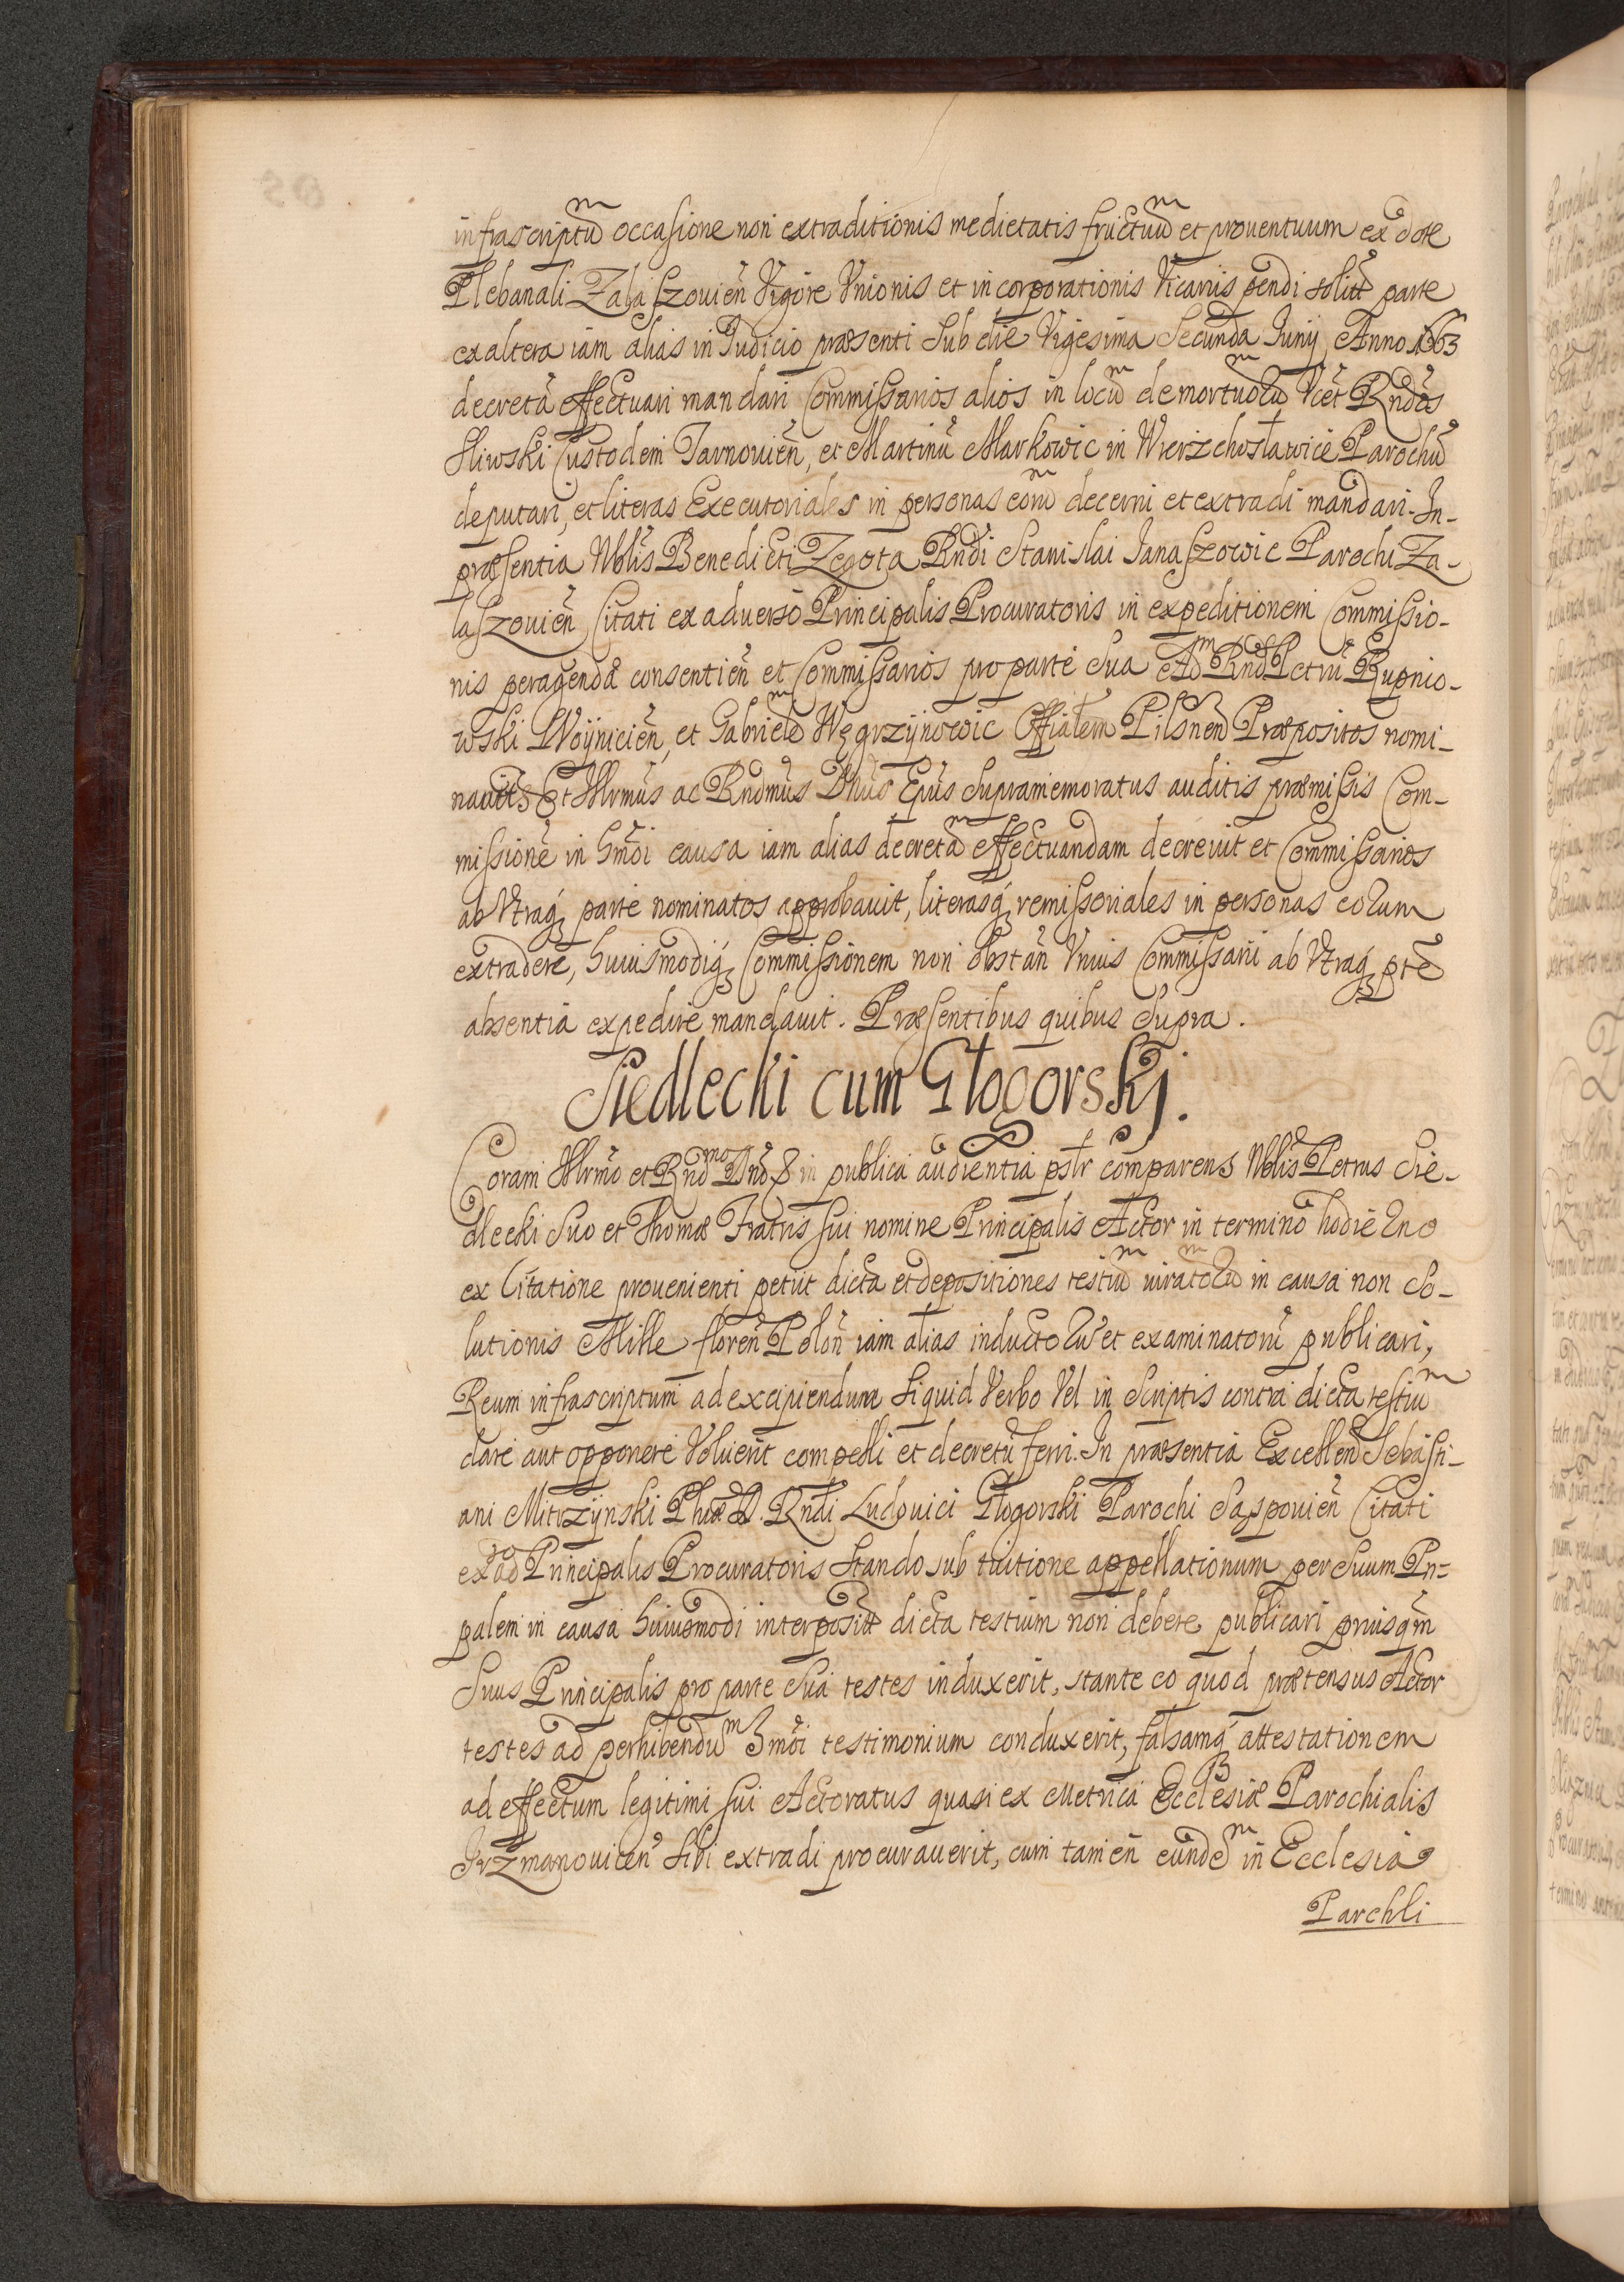 infrascriptũ occasione non extraditionis medietatis fructuũ et prouentuum ex dote
Plebanali Zalaszouien̄ Vigore Vnionis et incorporationis Vicariis pendi solitt parte
ex altera iam alias in Judicio præsenti Sub die Vigesima Secunda Junij Anno 1663
decretã effectuari mandari Commissarios alios in locũ demortuoꝝ Vcet Rndos
Sliwski Custodem Tarnouien̄, et Martinũ Markowic in Wierzchosławice Parochũ
deputari, et literas Executoriales in personas eorũ decerni et extradi mandari. In-
præsentia Nblis Benedicti Zegota Rndi Stanislai Janaszowic Parochi Za-
laszouien̄ Citati ex aduerso Principalis Procuratoris in expeditionem Commissio-
nis peragendæ consentien̄ et Commissarios pro parte Sua Adm Rndos Petrũ Rupnio-
wski Woynicien̄, et Gabrielẽ Węgrzynowic Offialem Pilsnen̄ Præpositos nomi-
nauit; Et Illrmus ac Rndmus Dnus Epus Supramemoratus auditis præmissis Com-
missionẽ in hmoi causa iam alias decretã effectuandam decreuit et Commissarios
ab Vtraq; parte nominatos approbauit, literasq; remissoriales in personas eoꝝum
extradere, huiusmodiq; Commissionem non obstan̄ Vnius Commissarii ab Vtraq; pte
absentia expedire mandauit. Præsentibus quibus Supra.
Siedlecki cum Głogorskj.
Coram Illrmo et Rndmo Dno & in publica audientia pslr comparens Nblis Petrus Sie-
dlecki Suo et Thomæ Fratris sui nomine Principalis Actor in termino hodierno
ex Citatione prouenienti petiit dicta et depositiones testiũ iuratoꝝ in causa non So-
lutionis Mille floren̄ Polon̄ iam alias inductoꝝ et examinatorũ publicari,
Reum infrascriptum ad excipiendum Siquid Verbo Vel in Scriptis contra dicta testiũ
dare aut opponere Voluerit compelli et decretũ ferri. In præsentia Excellen̄ Sebasti-
ani Mitrzynski Phiæ D. Rndi Ludouici Głogorski Parochi Sasspouien̄ Citati
ex adso Principalis Procuratoris Stando sub tuitione appellationum per Suum Pn-
palem in causa huiusmodi interposit dicta testium non debere publicari priusqm
Suus Principalis pro parte Sua testes induxerit, stante eo quod prætensus Actor
testes ad perhibendũ hmoi testimonium conduxerit, falsamq; attestationem
ad effectum legitimi sui Actoratus quasi ex Metrica Ecclesiæ Parochialis
Jrzmanouicen̄ Sibi extradi procurauerit, cum tamen eundẽ in Ecclesia
Parchli